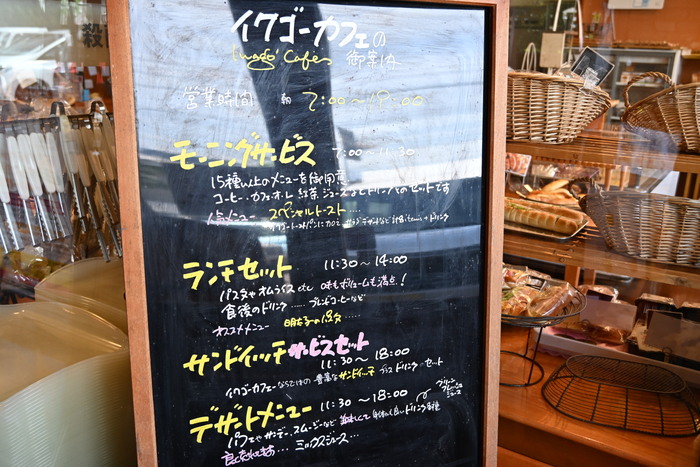 イクゴーカフェの
Cafes 御案内
営業時間 朝 7:00〜18:00
モーニングサービス 7:00〜11:30
15種以上のメニューを御用意
コーヒー・カフェオーレ 紅茶 ジュース などドリンクのセットです
人気メニュー スペシャルトースト……
ランチセット 11:30〜14:00
パスタやオムライス etc 味もボリュームも満点!
食後のドリンク…… ブレンドコーヒーなど
オススメメニュー 明太子のパスタ……
サンドイッチサービスセット 11:30〜18:00
イクゴーカフェーならではの 豊富なサンドイッチ プラス ドリンクのセット
デザートメニュー 11:30〜18:00
パフェやサンデー、スムージーなど 美味しくて 身体に良いドリンク各種
ミックスジュース……